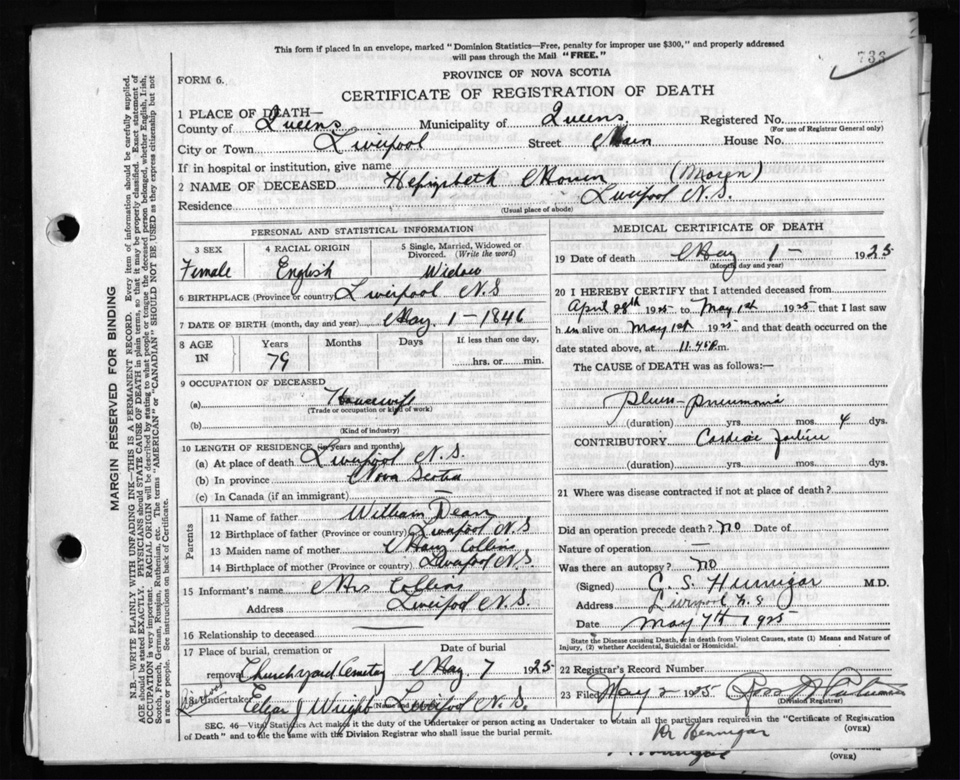 This form if placed in an envelope, marked "Dominion Statistics—Free, penalty for improper use $300," and properly addressed
will pass through the Mail "FREE."
733
FORM 6.
PROVINCE OF NOVA SCOTIA
CERTIFICATE OF REGISTRATION OF DEATH
1 PLACE OF DEATH—
County of Queens Municipality of Queens Registered No.
(For use of Registrar General only)
City or Town Liverpool Street Main House No.
If in hospital or institution, give name
2 NAME OF DECEASED Hepizbeth Mouen (Moren)
Residence Liverpool N.S.
(Usual place of abode)
PERSONAL AND STATISTICAL INFORMATION
3 SEX 4 RACIAL ORIGIN 5 Single, Married, Widowed or
Divorced. (Write the word)
Female English Widow
6 BIRTHPLACE (Province or country) Liverpool N.S
7 DATE OF BIRTH (month, day and year) May 1-1846
8 AGE IN Years Months Days If less than one day,
79 hrs. or min.
9 OCCUPATION OF DECEASED
(a) Housewife
(Trade or occupation or kind of work)
(b)
(Kind of industry)
10 LENGTH OF RESIDENCE (in years and months)
(a) At place of death Liverpool N.S.
(b) In province Nova Scotia
(c) In Canada (if an immigrant) —
Parents
11 Name of father William Dean
12 Birthplace of father (Province or country) Liverpool N S
13 Maiden name of mother Mary Collins
14 Birthplace of mother (Province or country) Liverpool N.S.
15 Informant's name Mrs Collins
Address Liverpool N.S.
16 Relationship to deceased
17 Place of burial, cremation or Date of burial
removal Churchyard Cemetery May 7 1925
Liverpool
18 Undertaker Elgar J Wright Liverpool N.S.
(Name and address)
MEDICAL CERTIFICATE OF DEATH
19 Date of death May 1- 1925
(Month, day and year)
20 I HEREBY CERTIFY that I attended deceased from
April 28th 1925 to May 1st 1925 that I last saw
h er alive on May 1st 1925 and that death occurred on the
date stated above, at 11.45 P.m.
The CAUSE of DEATH was as follows:—
Pleuro-pneumonia
(duration) yrs. mos. 4 dys.
CONTRIBUTORY Cardiac failure
(duration) yrs. mos. dys.
21 Where was disease contracted if not at place of death?
Did an operation precede death? NO Date of
Nature of operation —
Was there an autopsy? NO
(Signed) C. S. Hennigar M.D.
Address Liverpool N.S
Date May 7th 1925
State the Disease causing Death, or in death from Violent Causes, state (1) Means and Nature of
Injury, (2) whether Accidental, Suicidal or Homicidal.
22 Registrar's Record Number
23 Filed May 2 1925 Ross
(Division Registrar)
SEC. 46—Vital Statistics Act makes it the duty of the Undertaker or person acting as Undertaker to obtain all the particulars required in the "Certificate of Registration
of Death" and to file the same with the Division Registrar who shall issue the burial permit.
(OVER)
Dr Hennigar
(OVER)
MARGIN RESERVED FOR BINDING
N.B.—WRITE PLAINLY WITH UNFADING INK—THIS IS A PERMANENT RECORD. Every item of information should be carefully supplied.
AGE should be stated EXACTLY. PHYSICIANS should STATE CAUSE OF DEATH in plain terms, so that it may be properly classified. Exact statement of
OCCUPATION is very important. RACIAL ORIGIN will be described by stating to what people or tongue the deceased person belonged, whether English, Irish,
Scotch, French, German, Russian, Ruthenian, etc. The terms "AMERICAN" or "CANADIAN" SHOULD NOT BE USED as they express citizenship but not
a race or people. See instructions on back of Certificate.